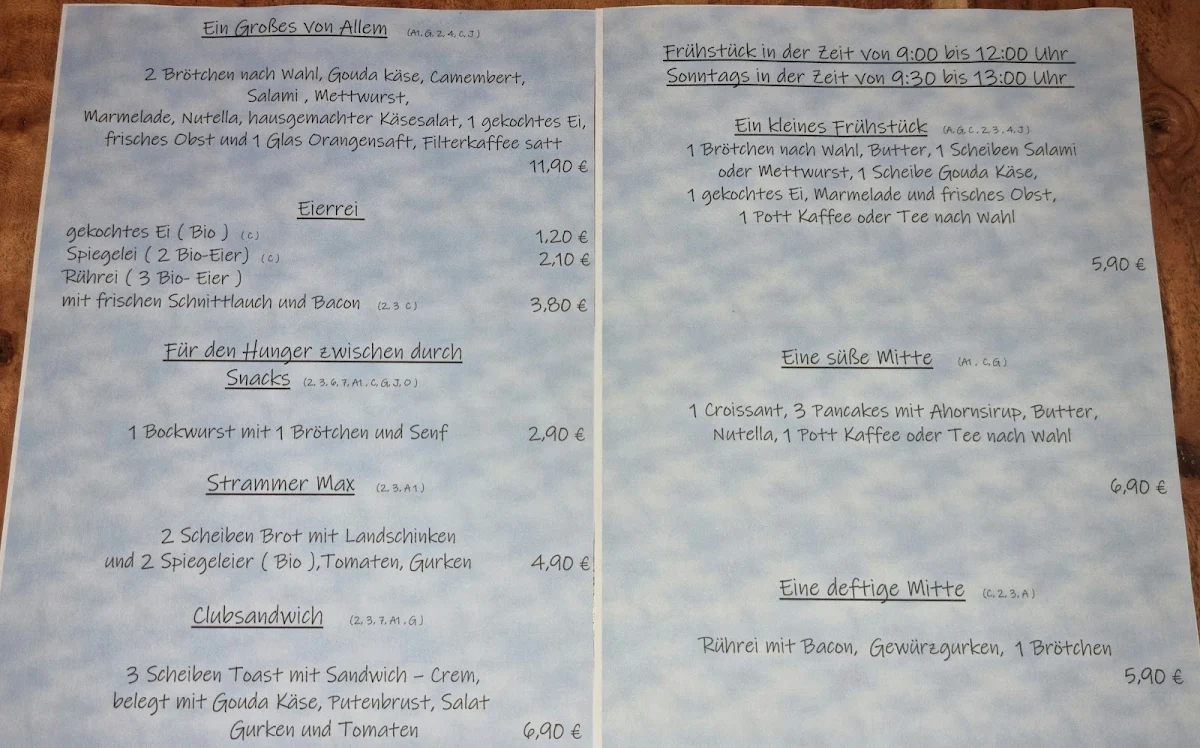 Ein Großes von Allem (A1, G, 2, 4, C, J)
2 Brötchen nach Wahl, Gouda Käse, Camembert,
Salami , Mettwurst,
Marmelade, Nutella, hausgemachter Käsesalat, 1 gekochtes Ei,
frisches Obst und 1 Glas Orangensaft, Filterkaffee satt
11,90 €
Eierrei
gekochtes Ei ( Bio ) (C) 1,20 €
Spiegelei ( 2 Bio-Eier) (C) 2,10 €
Rührei ( 3 Bio- Eier )
mit frischen Schnittlauch und Bacon (2, 3 C) 3,80 €
Für den Hunger zwischen durch
Snacks (2, 3, 6, 7, A1, C, G, J, O)
1 Bockwurst mit 1 Brötchen und Senf 2,90 €
Strammer Max (2, 3, A1)
2 Scheiben Brot mit Landschinken
und 2 Spiegeleier ( Bio ),Tomaten, Gurken 4,90 €
Clubsandwich (2, 3, 7, A1, G)
3 Scheiben Toast mit Sandwich – Crem,
belegt mit Gouda Käse, Putenbrust, Salat
Gurken und Tomaten 6,90 €
Frühstück in der Zeit von 9:00 bis 12:00 Uhr
Sonntags in der Zeit von 9:30 bis 13:00 Uhr
Ein kleines Frühstück (A, G, C, 2, 3, 4, J)
1 Brötchen nach Wahl, Butter, 1 Scheiben Salami
oder Mettwurst, 1 Scheibe Gouda Käse,
1 gekochtes Ei, Marmelade und frisches Obst,
1 Pott Kaffee oder Tee nach Wahl
5,90 €
Eine süße Mitte (A1, C, G)
1 Croissant, 3 Pancakes mit Ahornsirup, Butter,
Nutella, 1 Pott Kaffee oder Tee nach Wahl
6,90 €
Eine deftige Mitte (C, 2, 3, A)
Rührei mit Bacon, Gewürzgurken, 1 Brötchen
5,90 €